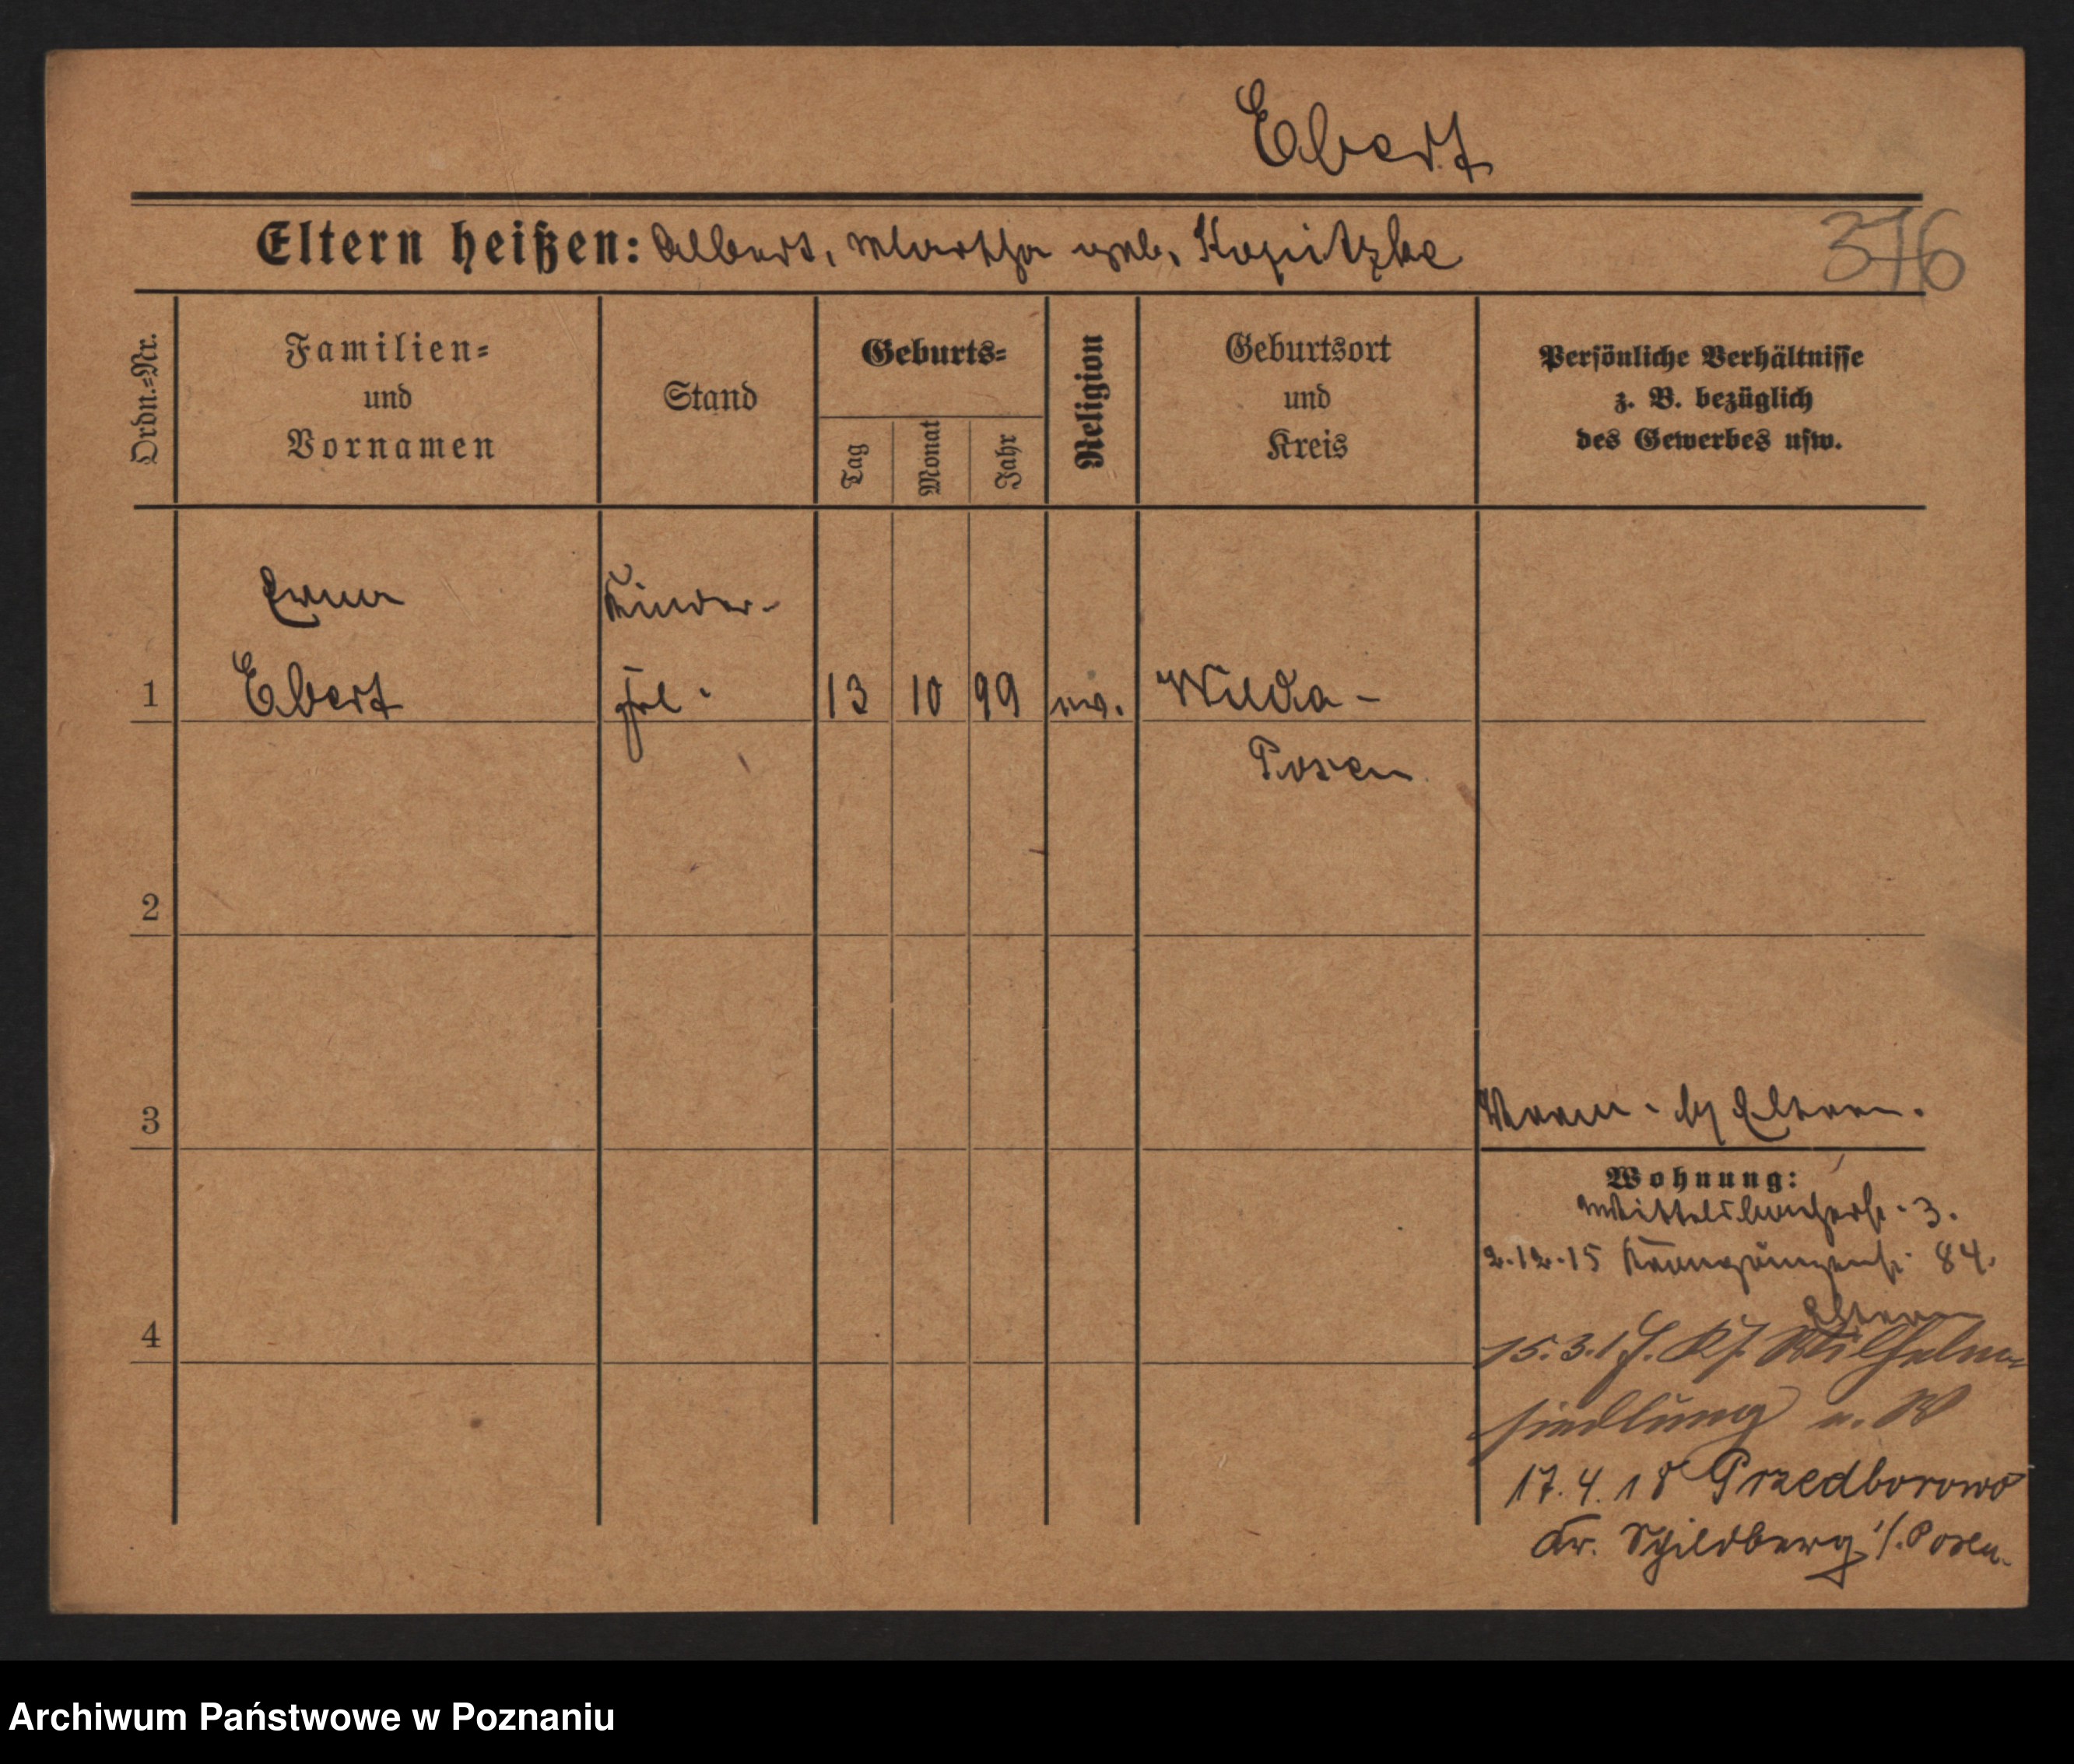 Ebert
Eltern heißen: Albert, Martha geb. Kopitzke
376
Ordn.=Nr.
Familien=
und
Vornamen
Stand
Geburts=
Tag
Monat
Jahr
Religion
Geburtsort
und
Kreis
Persönliche Verhältnisse
z. B. bezüglich
des Gewerbes usw.
Erna
Kinder-
1 Ebert frl. 13 10 99 ev. Wilda -
Posen
2
3
Eltern.
Wohnung:
3.
2.12.15 84.
Eltern
4
15.3.17. Wilhelm=
siedlung
17.4.18 Przedborowo
Kr. Schildberg i/. Posen.
Archiwum Państwowe w Poznaniu